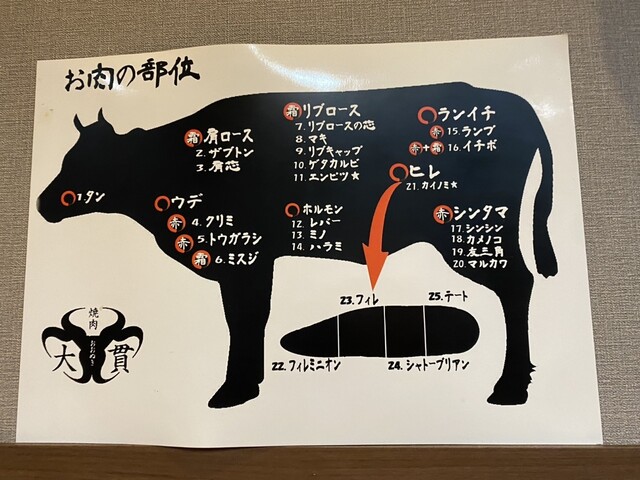 お肉の部位
霜 肩ロース
2. ザブトン
3. 肩芯
霜 リブロース
7. リブロースの芯
8. マキ
9. リブキャップ
10. ゲタカルビ
11. エンピツ★
ランイチ
赤 15. ランプ
赤+霜 16. イチボ
ヒレ
21. カイノミ★
1タン
ウデ
赤 4. クリミ
赤 5. トウガラシ
霜 6. ミスジ
ホルモン
12. レバー
13. ミノ
14. ハラミ
赤 シンタマ
17. シンシン
18. カメノコ
19. 友三角
20. マルカワ
23. フィレ
25. テート
22. フィレミニオン
24. シャトーブリアン
焼肉
おおぬき
大貫